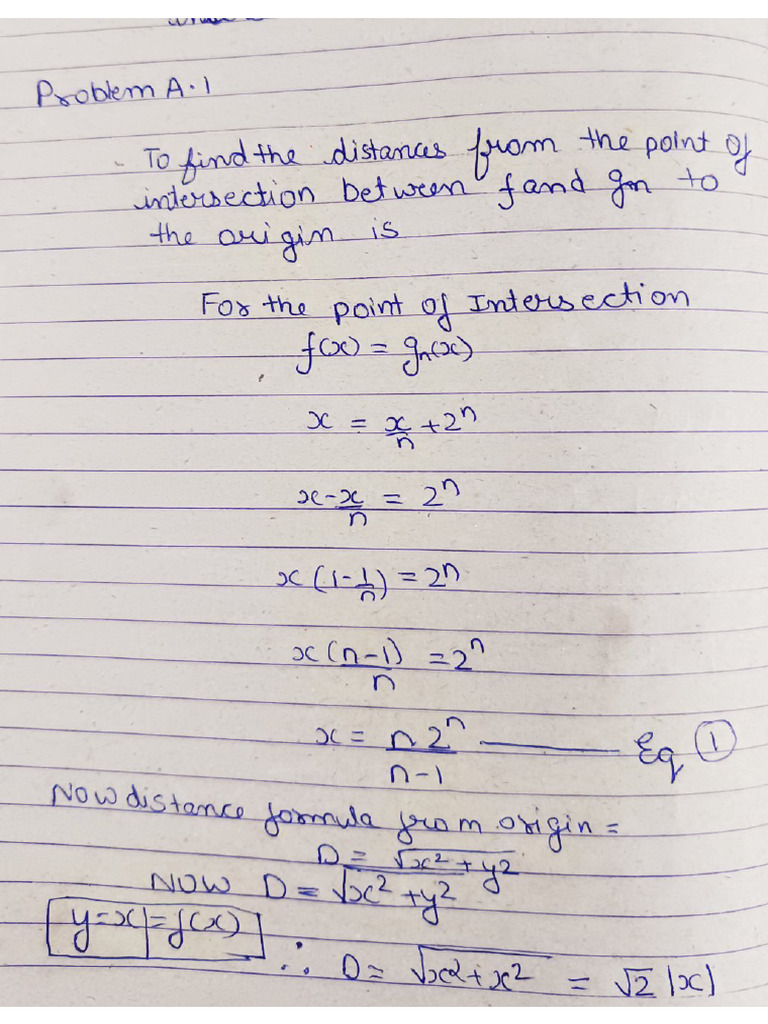 Problem A.1
To find the distances from the point of
intersection between f and gn to
the origin is
For the point of Intersection
f(x) = gn(x)
x = x/n + 2^n
x - x/n = 2^n
x (1 - 1/n) = 2^n
x (n-1)/n = 2^n
x = n 2^n/n-1 ——— Eq ①
Now distance formula from origin =
D = √x² + y²
NOW D = √x² + y²
y = x = f(x)
∴ D = √x² + x² = √2 |x|